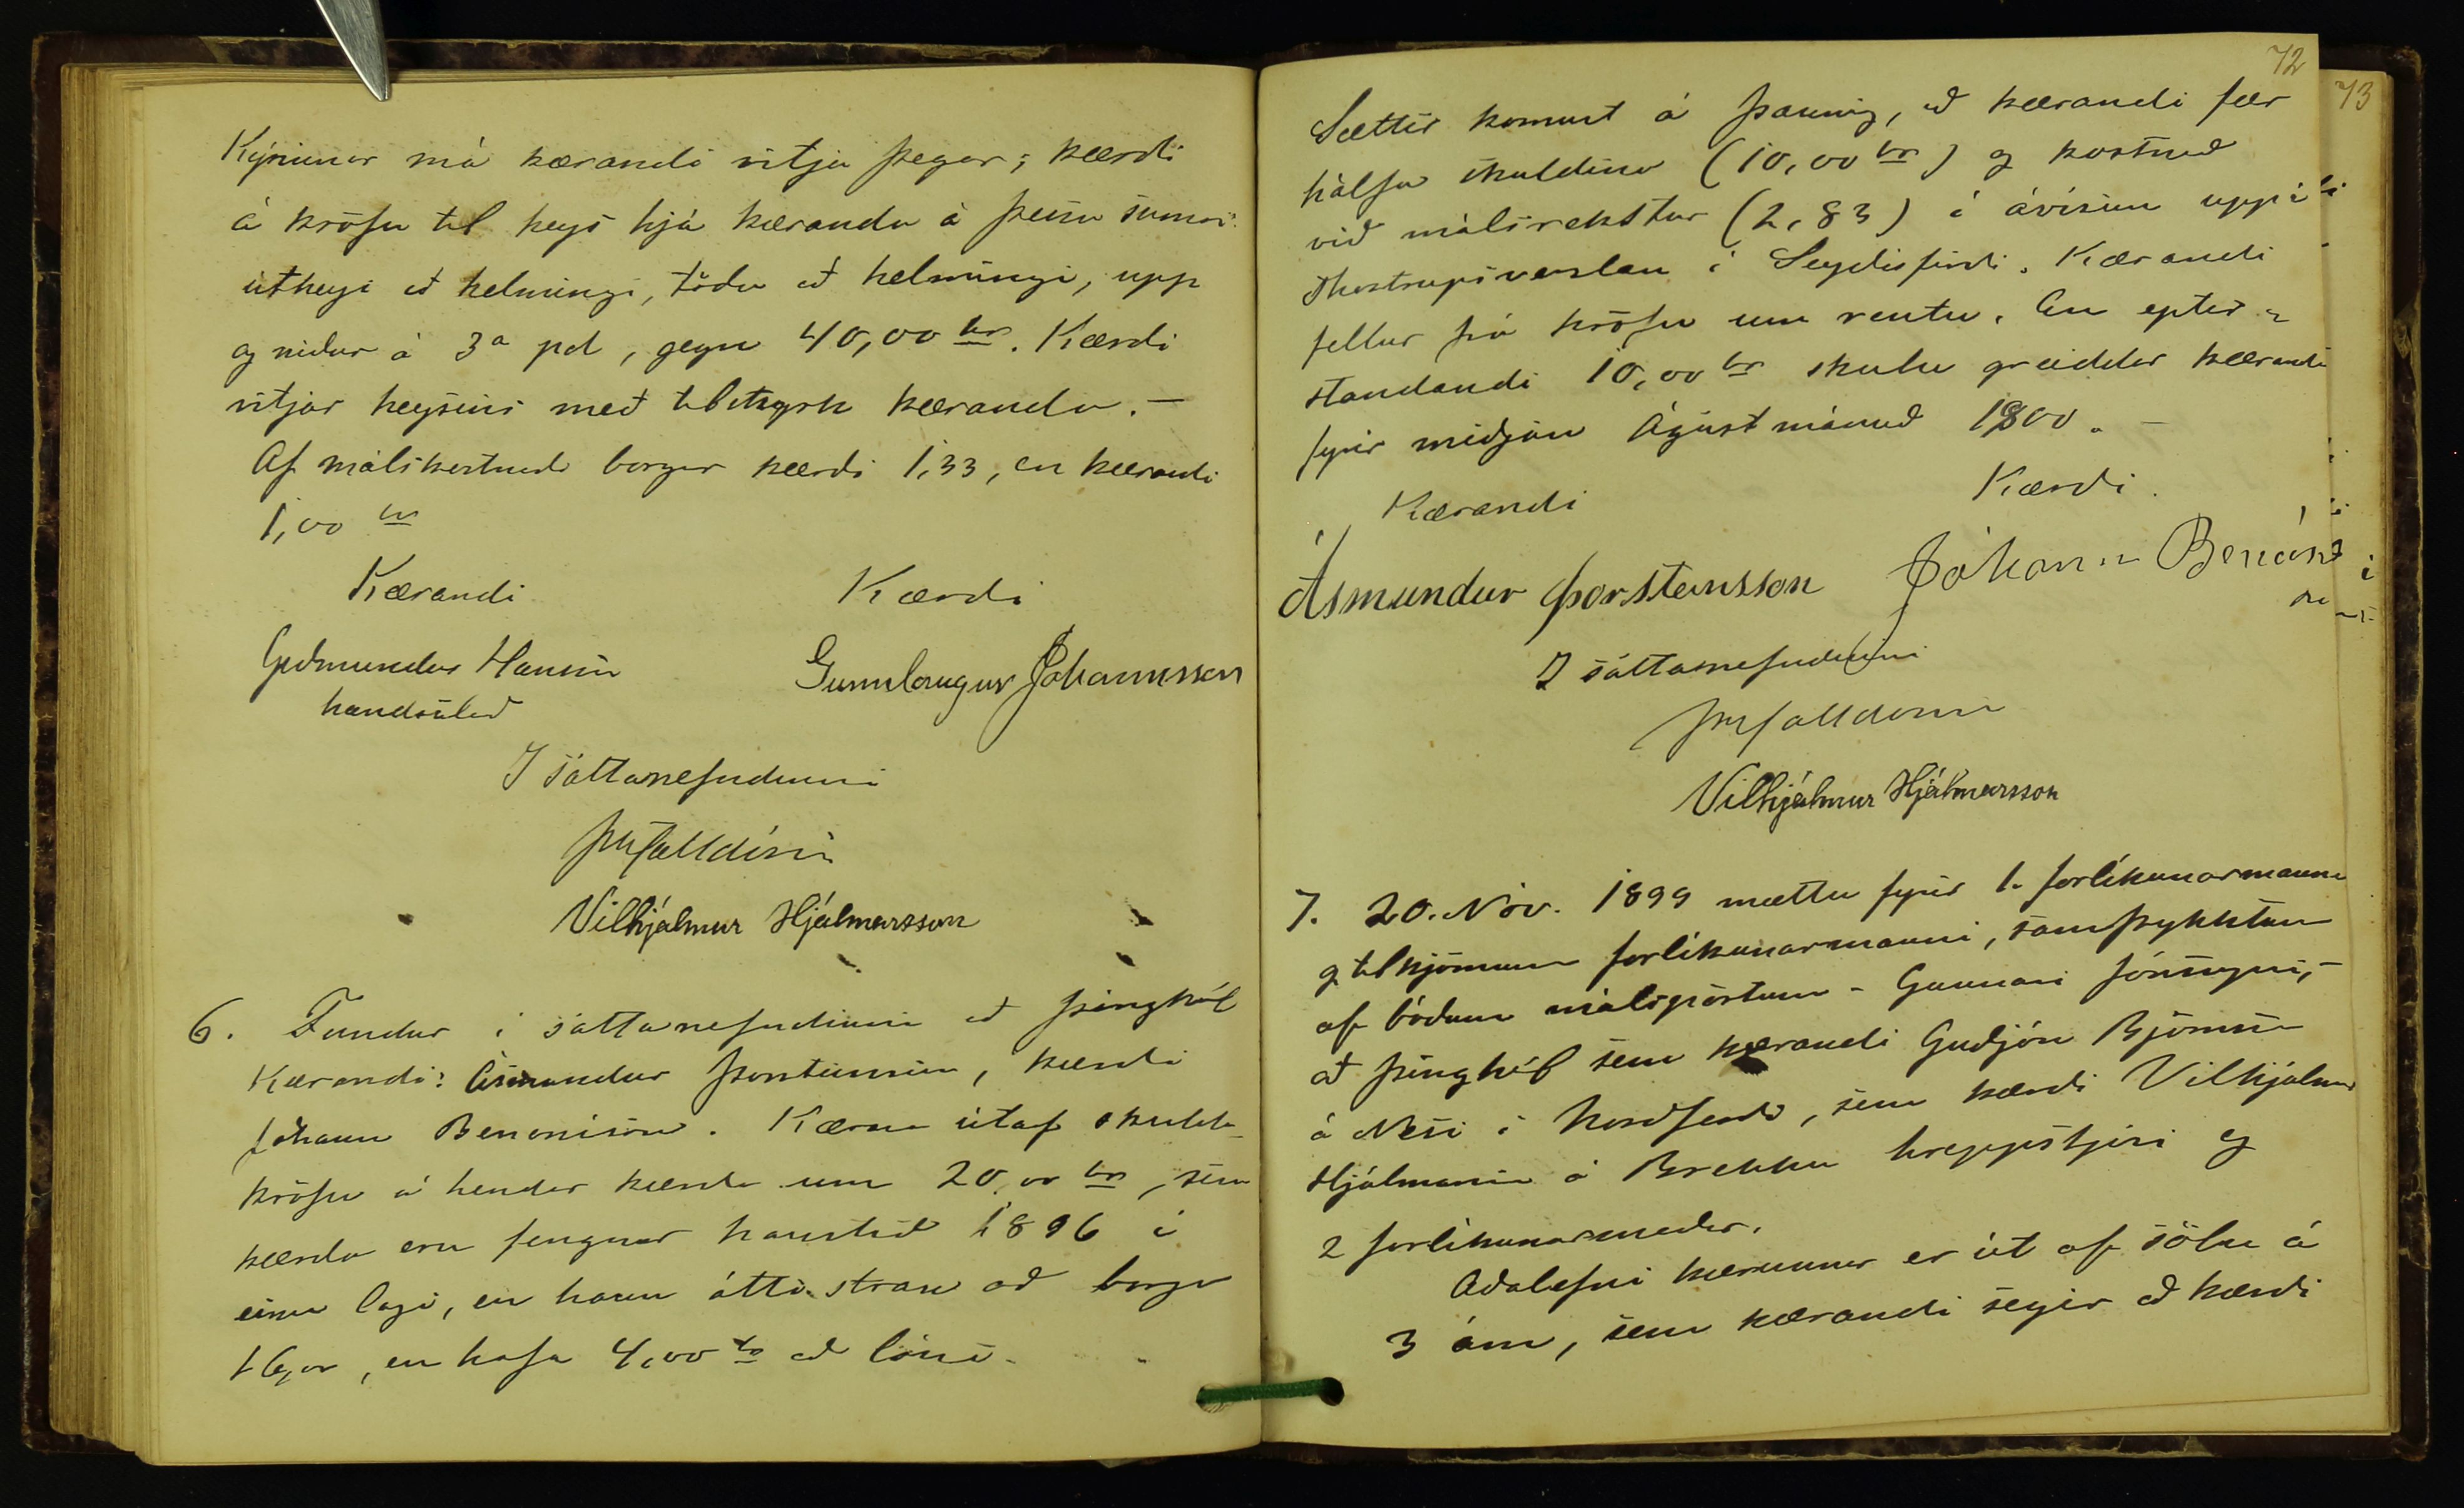 Kýrinnar má kærandi vitja þegar; kærdi
á kröfu til heys hjá kæranda á þessu sumri:
útheyi að helmingi, töðu að helmingi, upp
og niður á 3a pd, gegn 40,00 kr. Kærdi
vitjar heysins með tilstyrk kæranda. –
Af málskostnadi borgar kærdi 1,33, en kærandi
1,00 kr
Kærandi Kærdi
Guðmundur Hansson Gunnlaugur Jóhannsson
handsalað
Í sáttanefndinni
Vilhjálmur Hjálmarsson
6. Fundur í sáttanefndinni að Þinghól
Kærandi: Ásmundur Þorsteinsson, kærdi
Jóhann Benonísson. Kæran útaf skulda-
kröfu á hendur kærda um 20,00 kr, sem
kærda eru fengnar haustið 1896 í
einu lagi, en hann átti strax að borga
16,00, en hafa 4,00 kr að láni.
72
73
Sættir komust á þannig, að kærandi fær
hálfa skuldina (10,00 kr) og kostnað
við málsrekstur (2,83) í ávísun uppá
Thostrupsverslun í Seydisfirdi. Kærandi
fellur frá kröfu um rentu. En eptir-
standandi 10,00 kr skulu greiddar kæranda
fyrir miðjan Ágústmánuð 1900. –
Kærandi Kærdi.
Ásmundur Þorsteinsson Jóhann Benóní
Í sáttanefndinni
Vilhjálmur Hjálmarsson
7. 20. Nóv. 1899 mættu fyrir 1. forlíkunarmanni
og tilkjörnum forlíkunarmanni, samþykktum
af báðum málspörtum – Gunnari Jónssyni, –
að Þinghól sem kærandi Guðjón Björnsson
á Nesi í Nordfirdi, sem kærdi Vilhjálmur
Hjálmarsson á Brekku hreppstjóri og
2 forlíkunarmaður.
Aðalefni kærunnar er út af sölu á
3 ám, sem kærandi segir að kærdi